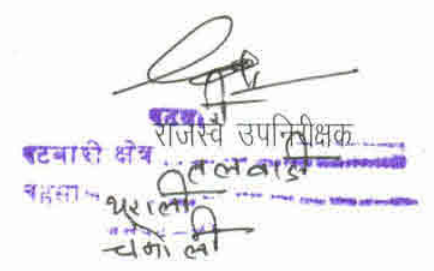 राजस्व उपनिरीक्षक
पटवारी क्षेत्र तलवाडी
थराली
चमोली